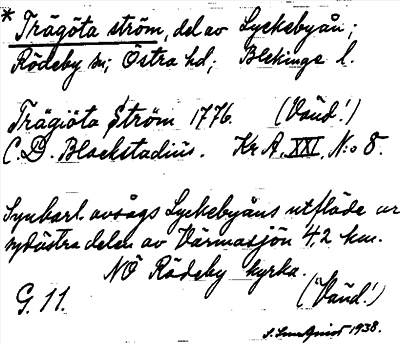 * Trägöta ström, del av Lyckebyån;
Rödeby sn; Östra hd; Blekinge l.
Trägiöta Ström 1776. (Vänd!)
C. D. Blackstadius. Kr A. XXI, N:o 8.
Synbarl. avsågs Lyckebyåns utflöde ur
sydöstra delen av Värmasjön 4,2 km.
NÖ Rödeby kyrka.
G. 11. (Vänd!)
1938.